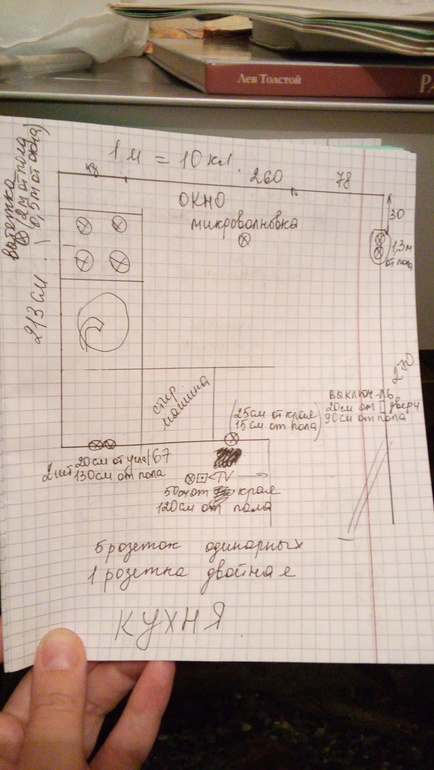 Лев Толстой
1 м = 10 кл.
260 78
ОКНО
микроволновка
30
1,3м
от пола
вытяжка
2м от пола
0,5м от окна)
213 см
270
стир
машина
(25см от края
15см от пола)
выключ-ль
20см от двери
90см от пола
2шт 20см от угла/67
130см от пола
<TV
50см от края
120см от пола
5 розеток одинарных
1 розетка двойная
КУХНЯ